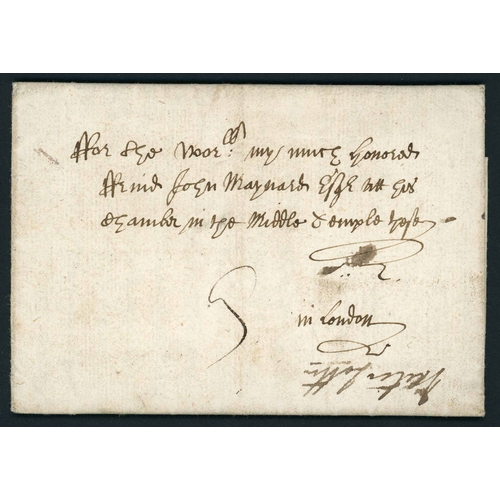 ffor the Wor.ll my much honored
ffreind John Maynard Esqr att his
Chamber in the Middle Temple these
in London